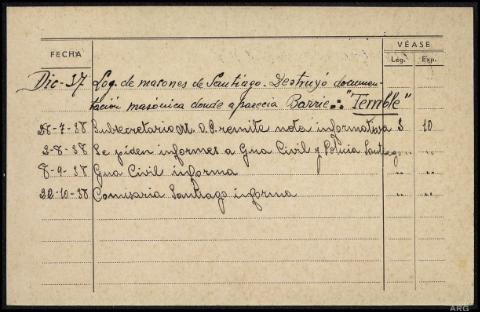 VÉASE
FECHA Lég. Exp.
Dic-37 Log. de masones de Santiago. Destruyó documen-
tación masónica donde aparecia Barrié ∴ "Temble"
28-7-38 Subsecretario M. O.P. remite nota informativa 3 10
2-8-38 Se piden informes a Gua Civil y Policia Santiago " "
8-9-38 Gua Civil informa " "
22-10-38 Comisaria Santiago informa " "
ARG